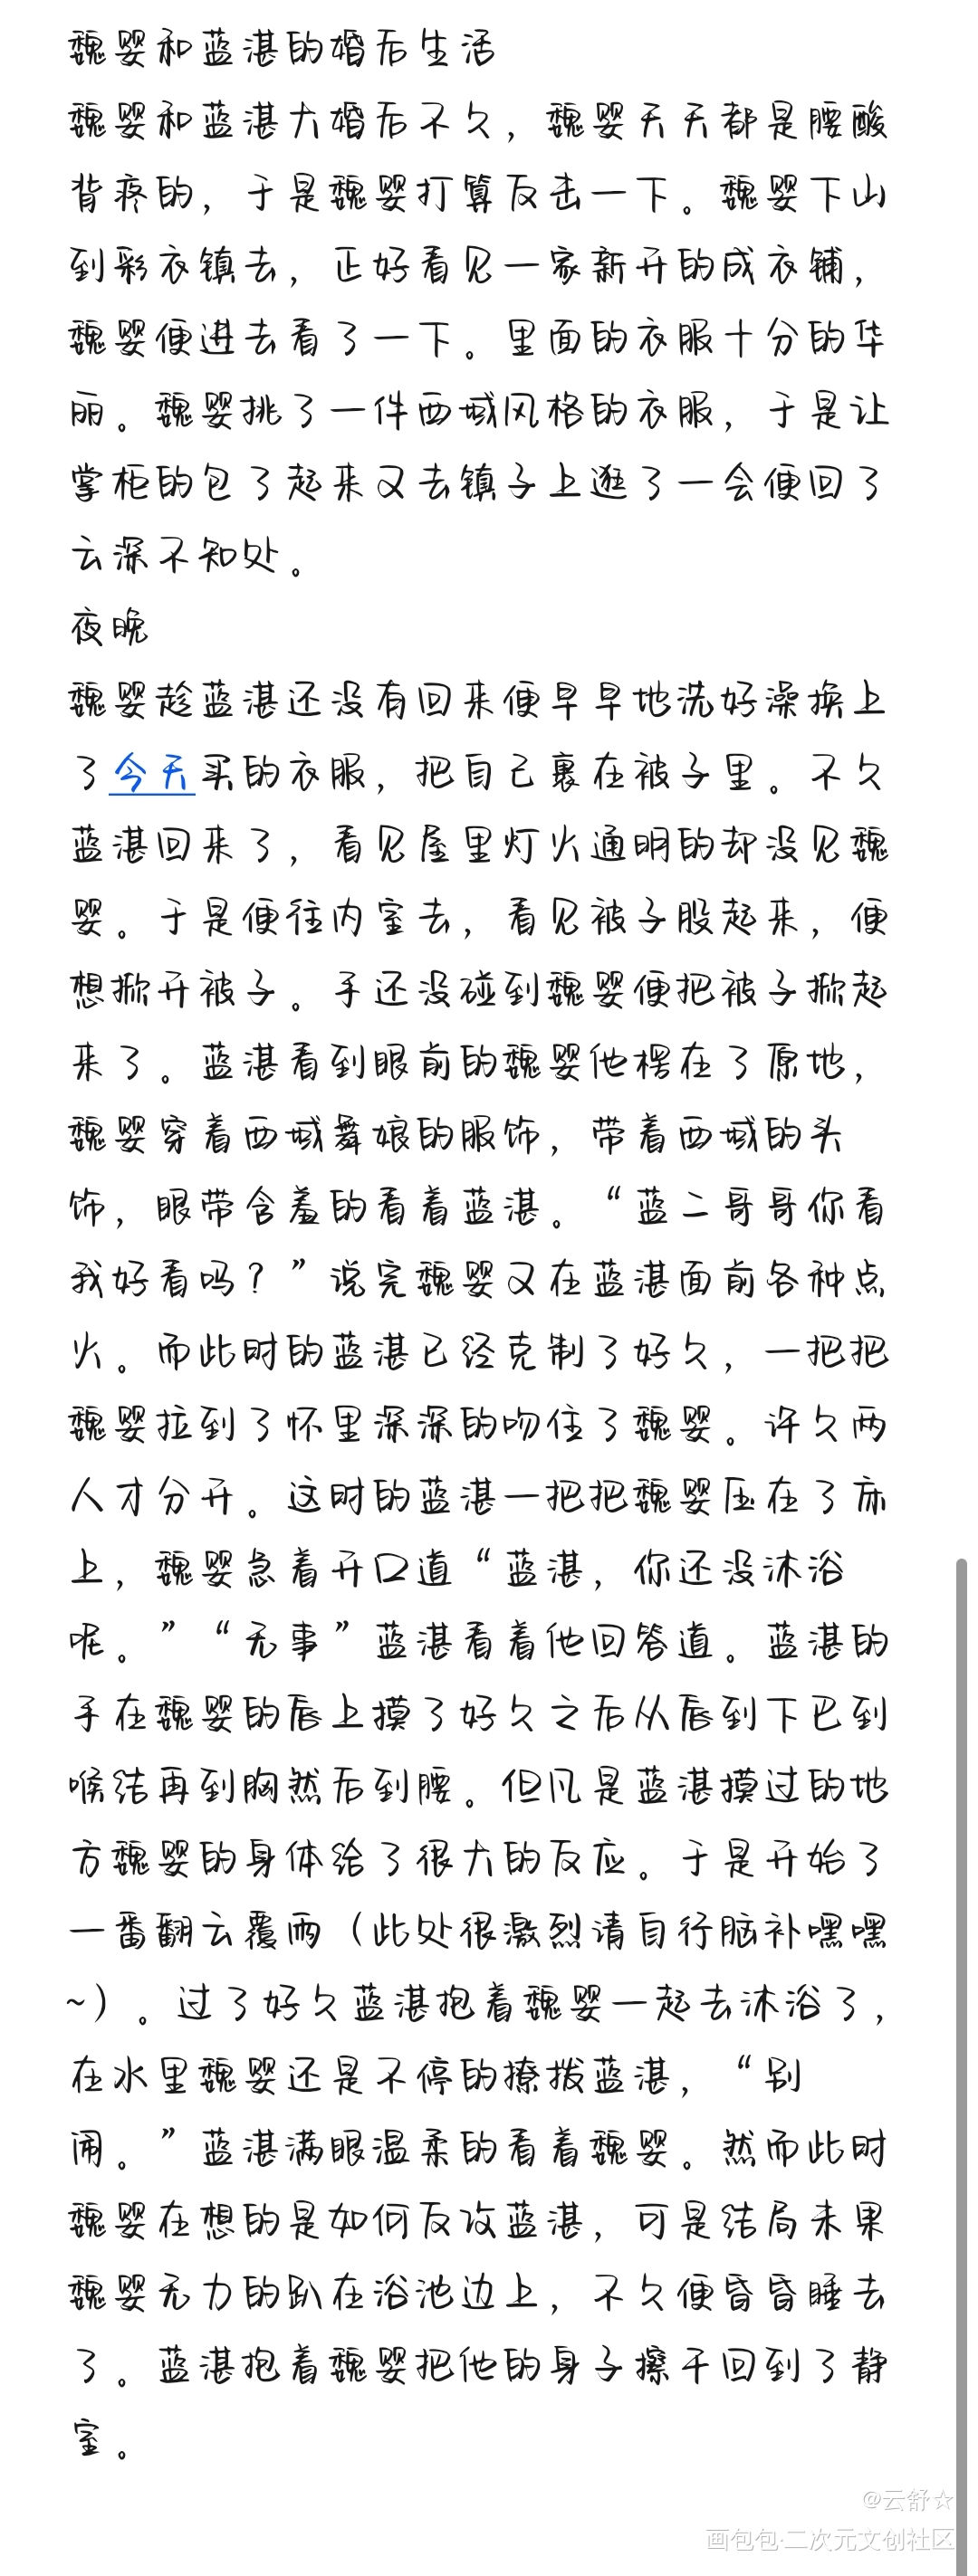 魏婴和蓝湛的婚后生活
魏婴和蓝湛大婚后不久，魏婴天天都是腰酸
背疼的，于是魏婴打算反击一下。魏婴下山
到彩衣镇去，正好看见一家新开的成衣铺，
魏婴便进去看了一下。里面的衣服十分的华
丽。魏婴挑了一件西域风格的衣服，于是让
掌柜的包了起来又去镇子上逛了一会便回了
云深不知处。
夜晚
魏婴趁蓝湛还没有回来便早早地洗好澡换上
了今天买的衣服，把自己裹在被子里。不久
蓝湛回来了，看见屋里灯火通明的却没见魏
婴。于是便往内室去，看见被子股起来，便
想掀开被子。手还没碰到魏婴便把被子掀起
来了。蓝湛看到眼前的魏婴他楞在了原地，
魏婴穿着西域舞娘的服饰，带着西域的头
饰，眼带含羞的看着蓝湛。“蓝二哥哥你看
我好看吗？”说完魏婴又在蓝湛面前各种点
火。而此时的蓝湛已经克制了好久，一把把
魏婴拉到了怀里深深的吻住了魏婴。许久两
人才分开。这时的蓝湛一把把魏婴压在了床
上，魏婴急着开口道“蓝湛，你还没沐浴
呢。”“无事”蓝湛看着他回答道。蓝湛的
手在魏婴的唇上摸了好久之后从唇到下巴到
喉结再到胸然后到腰。但凡是蓝湛摸过的地
方魏婴的身体给了很大的反应。于是开始了
一番翻云覆雨（此处很激烈请自行脑补嘿嘿
~）。过了好久蓝湛抱着魏婴一起去沐浴了，
在水里魏婴还是不停的撩拨蓝湛，“别
闹。”蓝湛满眼温柔的看着魏婴。然而此时
魏婴在想的是如何反攻蓝湛，可是结局未果
魏婴无力的趴在浴池边上，不久便昏昏睡去
了。蓝湛抱着魏婴把他的身子擦干回到了静
室。
@云舒☆
画包包·二次元文创社区